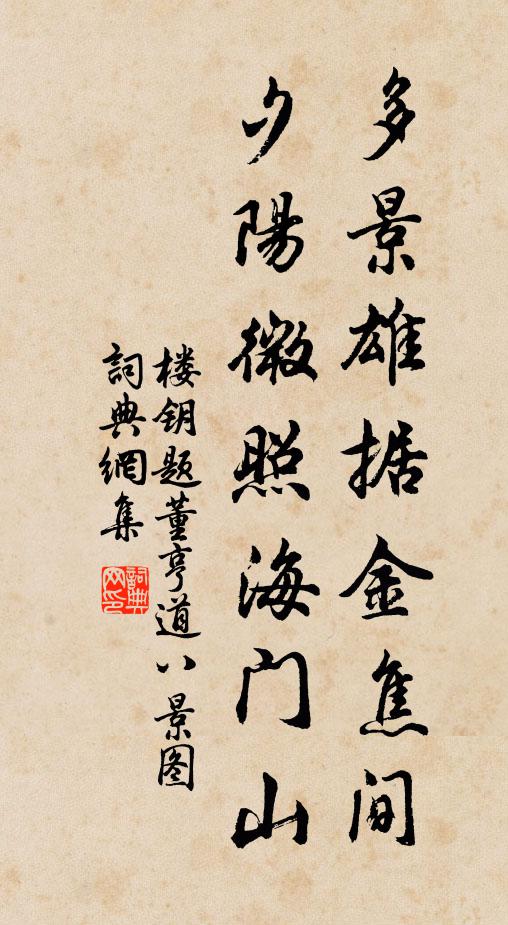 多景雄据金焦间
夕陽微照海门山
楼钥题董亨道八景图
詞典網集
詞典网印